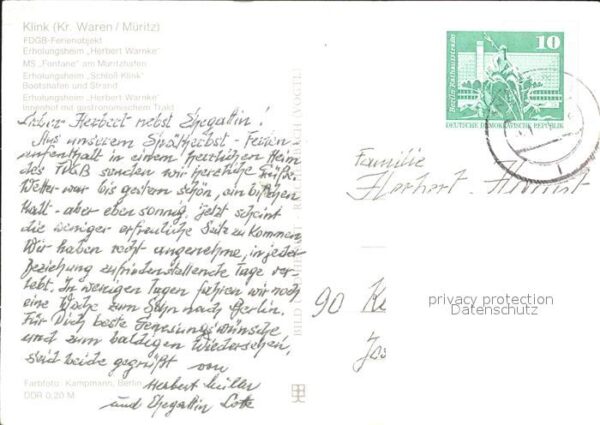 Klink (Kr. Waren / Müritz)
FDGB-Ferienobjekt
Erholungsheim „Herbert Warnke"
MS „Fontane" am Müritzhafen
Erholungsheim „Schloß Klink"
Bootshafen und Strand
Erholungsheim „Herbert Warnke"
Innenhof mit gastronomischem Trakt
Lieber Herbert nebst Ehegattin!
Aus unserem Spätherbst-Ferien-
aufenthalt in einem herrlichen Heim
des FDGB senden wir herzliche Grüße.
Wetter war bis gestern schön, ein bißchen
kalt - aber eben sonnig. Jetzt scheint
die weniger erfreuliche Seite zu kommen.
Wir haben recht angenehme, in jeder
Beziehung zufriedenstellende Tage ver-
lebt. In wenigen Tagen fahren wir noch
eine Woche zum Sohn nach Berlin.
Für Dich beste Genesungswünsche
und zum baldigen Wiedersehen,
seid beide gegrüßt von
Herbert Müller
und Ehegattin Lotte
Farbfoto: Kampmann, Berlin
DDR 0,20 M
BILD UND HEIMAT REICHENBACH (VOGTL)
10
Berlin, Rathausstraße
DEUTSCHE DEMOKRATISCHE REPUBLIK
Familie
Herbert
90
privacy protection
Datenschutz